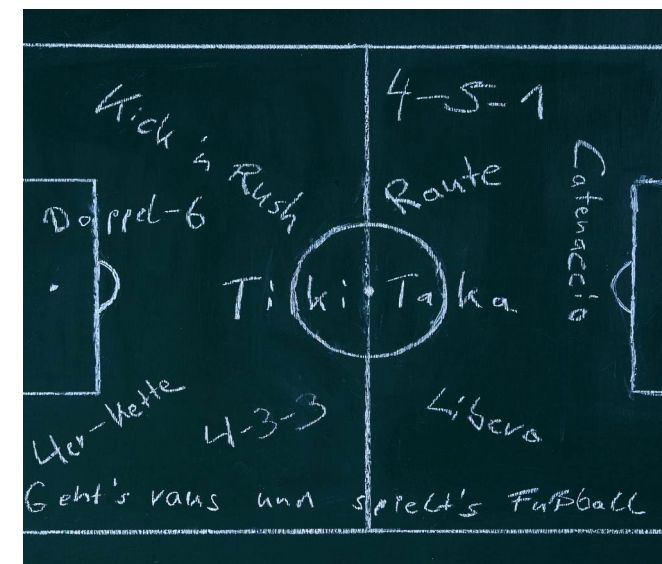 Kick 'n Rush
4-5-1
Raute
Catenaccio
Doppel-6
Tiki Taka
4er-Kette
4-3-3
Libero
Geht's raus und spielt's Fußball